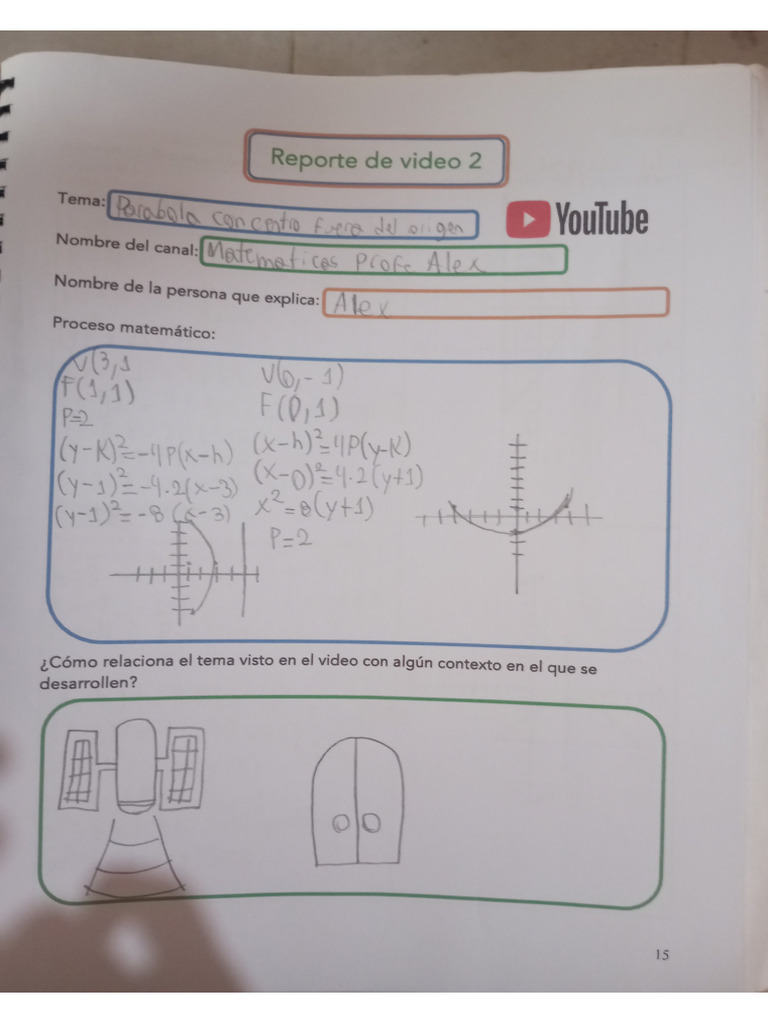 Reporte de video 2
Tema: Parabola con centro fuera del origen
YouTube
Nombre del canal: Matematicas Profe Alex
Nombre de la persona que explica: Alex
Proceso matemático:
V(3,1
F(1,1)
P=2
(y-K)²=-4P(x-h)
(y-1)²=-4.2(x-3)
(y-1)²=-8(x-3)
V(0,-1)
F(0,1)
(x-h)²=4P(y-K)
(x-0)²=4.2(y+1)
x²=8(y+1)
P=2
¿Cómo relaciona el tema visto en el video con algún contexto en el que se
desarrollen?
15